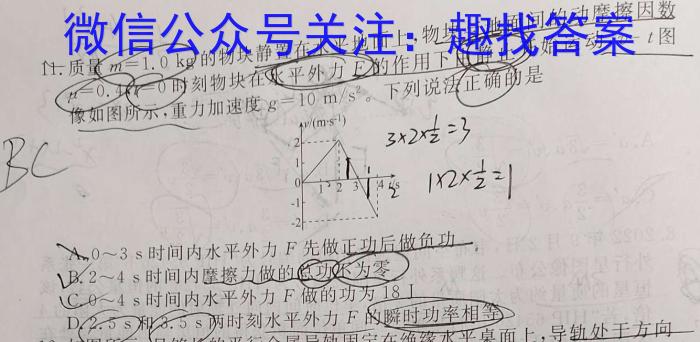 微信公众号关注：趣找答案
11.质量 m=1.0 kg的物块静置在水平地面上,物块 地面间的动摩擦因数
μ=0.4, t=0时刻物块在水平外力 F 的作用下 t图
像如图所示,重力加速度 g=10 m/s²。下列说法正确的是
v/(m·s⁻¹)
2
1
0
1 2 3 4 t/s
-1
-2
3×2×1/2=3
1×2×1/2=1
BC
A.0~3 s时间内水平外力 F 先做正功后做负功
B.2~4 s时间内摩擦力做的总功不为零
C.0~4 s时间内水平外力 F 做的功为 18 J
D.2.5 s和3.5 s两时刻水平外力 F 的瞬时功率相等
平行金属导轨固定在绝缘水平桌面上,导轨处于方向